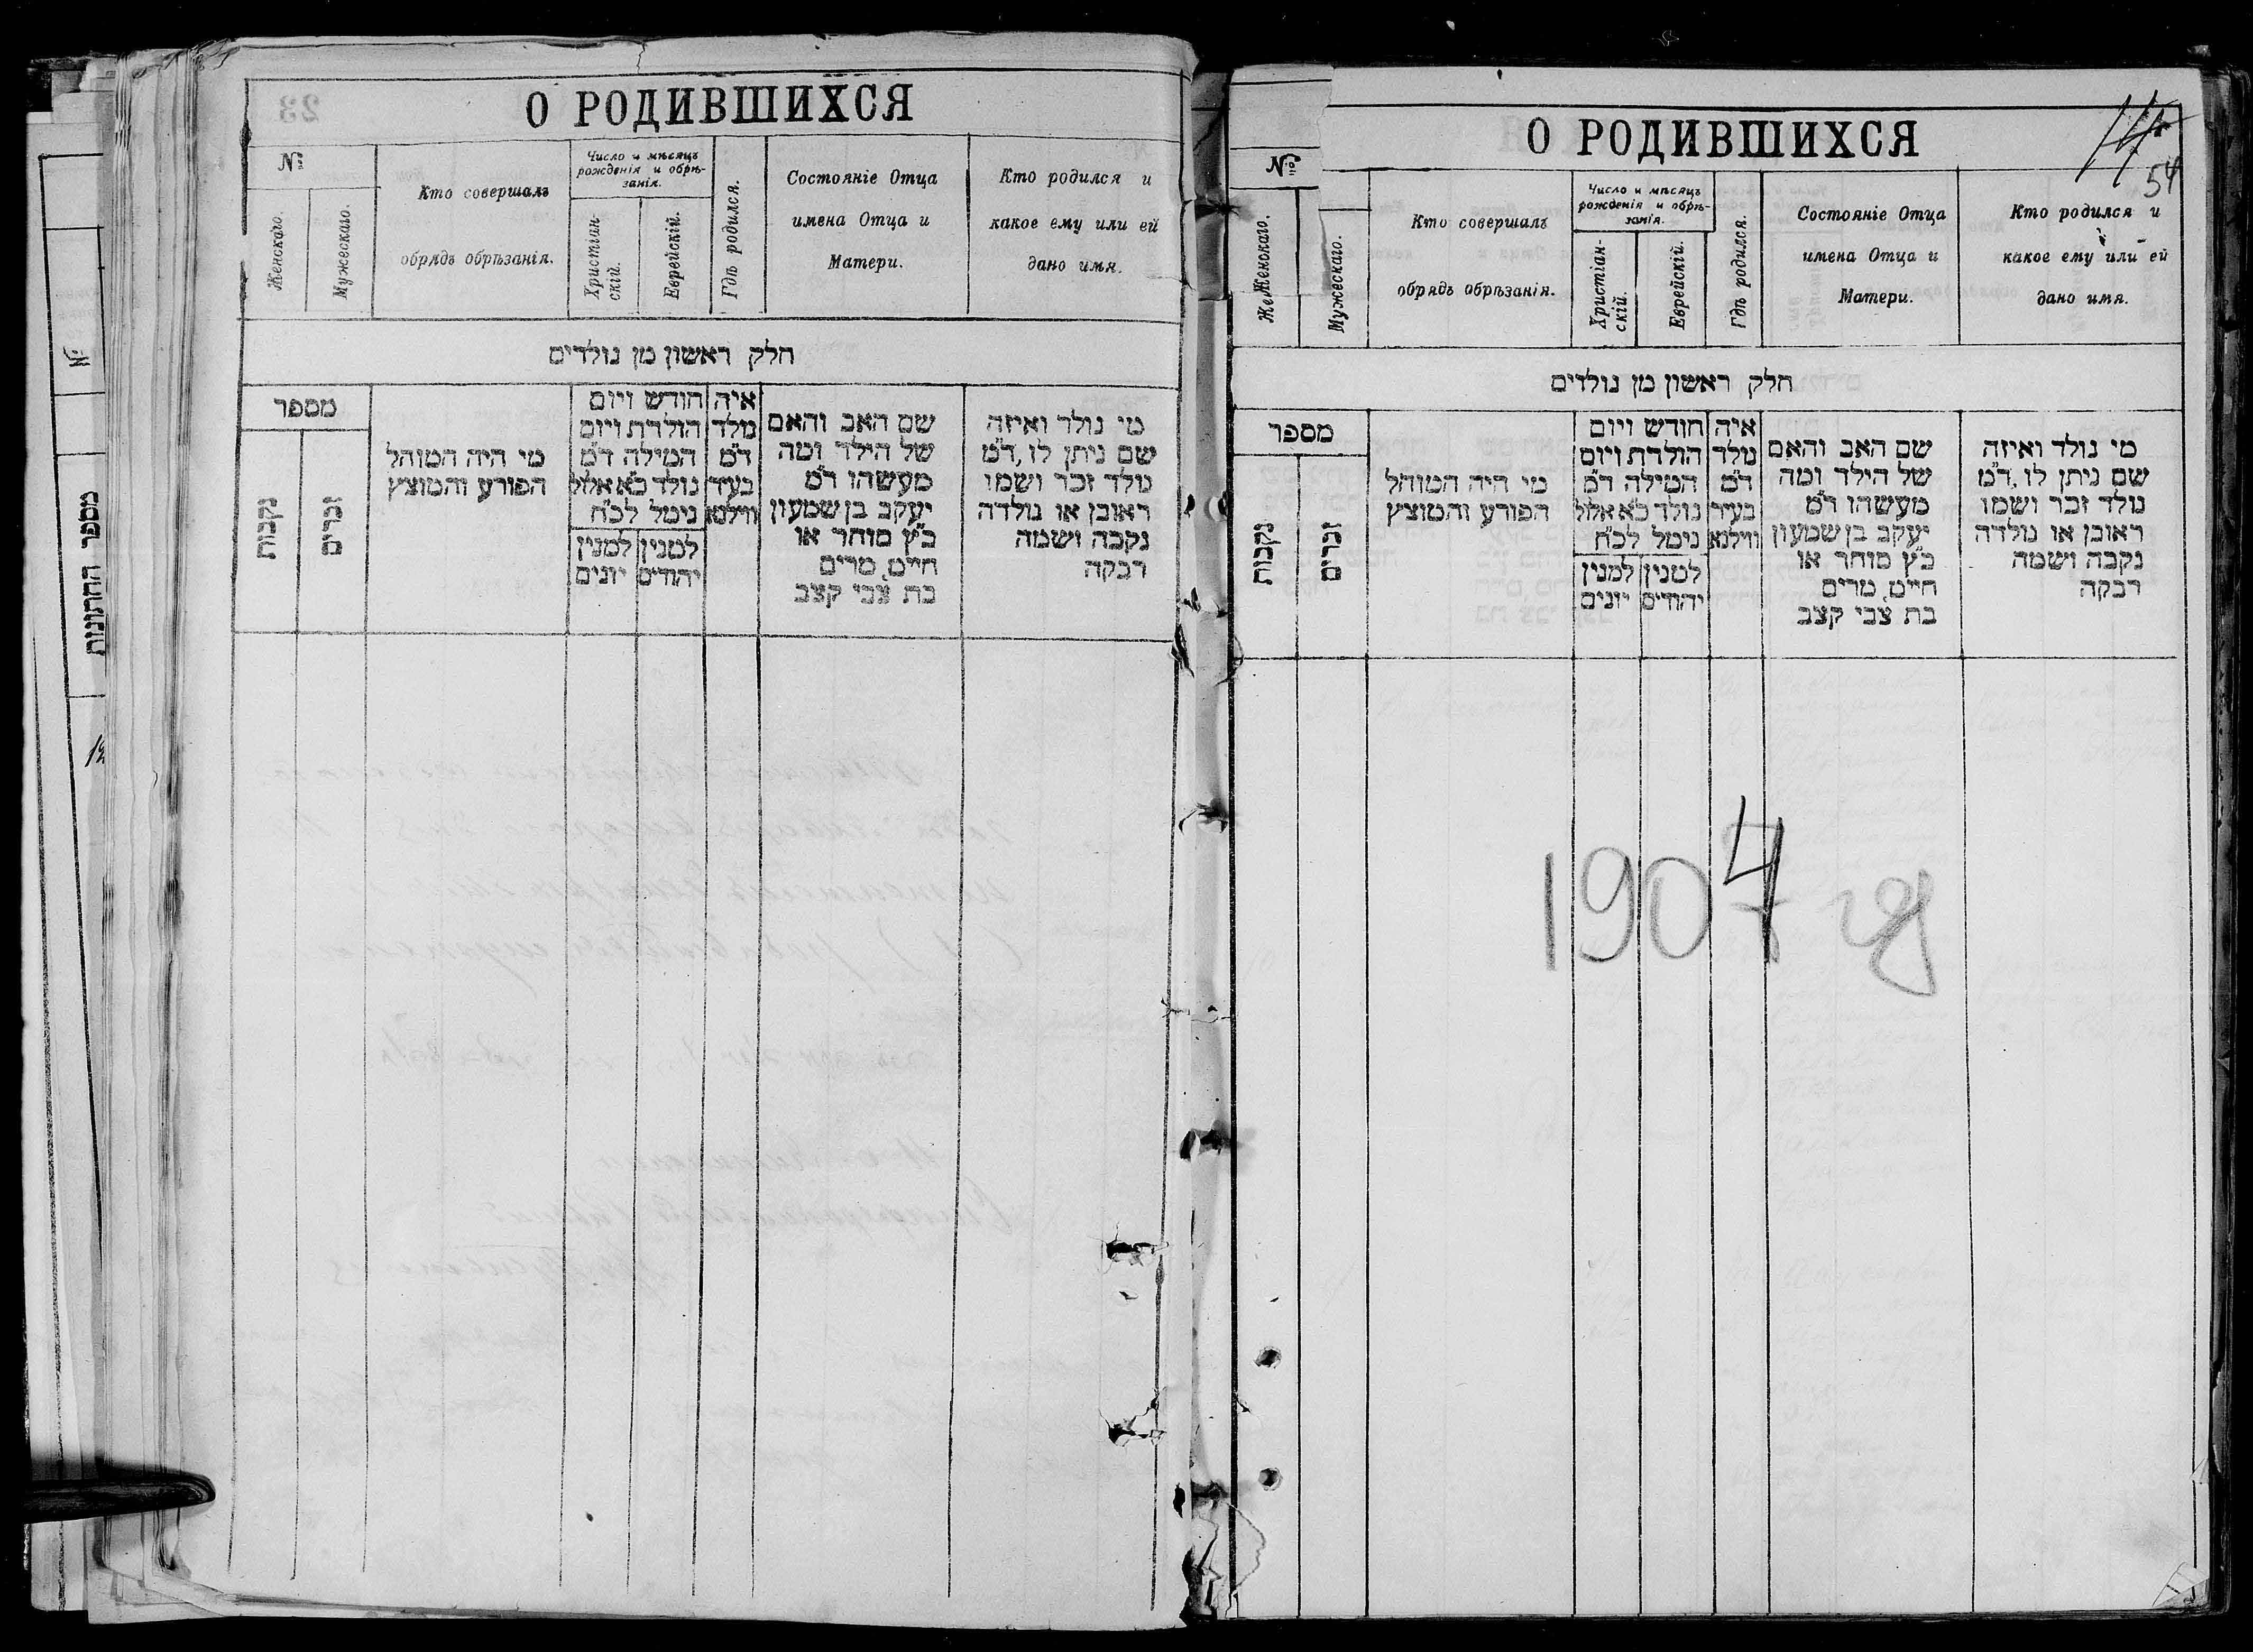 О РОДИВШИХСЯ
№
Женскаго.
Мужескаго.
Кто совершалъ
обрядъ обрѣзанія.
Число и мѣсяцъ
рожденія и обрѣ-
занія.
Христіан-
скій.
Еврейскій.
Гдѣ родился.
Состояніе Отца
имена Отца и
Матери.
Кто родился и
какое ему или ей
дано имя.
חלק ראשון מן נולדים
מספר
נקבות
זכרים
מי היה המוהל
הפורע והמוצץ
חודש ויום
הולדת ויום
המילה ד״מ
נולד כ״א אלול
נימל לכ״ח
למנין
יונים
למנין
יהודים
איה
נולד
ד״מ
בעיר
ווילנא
שם האב והאם
של הילד ומה
מעשהו ד״מ
יעקב בן שמעון
כ״ץ סוחר או
חייט, מרים
בת צבי קצב
מי נולד ואיזה
שם ניתן לו, ד״מ
נולד זכר ושמו
ראובן או נולדה
נקבה ושמה
רבקה
№
מספר החתונות
О РОДИВШИХСЯ
54
№
Женскаго.
Же
Мужескаго.
Кто совершалъ
обрядъ обрѣзанія.
Число и мѣсяцъ
рожденія и обрѣ-
занія.
Христіан-
скій.
Еврейскій.
Гдѣ родился.
Состояніе Отца
имена Отца и
Матери.
Кто родился и
какое ему или ей
дано имя.
חלק ראשון מן נולדים
מספר
נקבות
זכרים
מי היה המוהל
הפורע והמוצץ
חודש ויום
הולדת ויום
המילה ד״מ
נולד כ״א אלול
נימל לכ״ח
למנין
יונים
למנין
יהודים
איה
נולד
ד״מ
בעיר
ווילנא
שם האב והאם
של הילד ומה
מעשהו ד״מ
יעקב בן שמעון
כ״ץ סוחר או
חייט, מרים
בת צבי קצב
מי נולד ואיזה
שם ניתן לו, ד״מ
נולד זכר ושמו
ראובן או נולדה
נקבה ושמה
רבקה
1904 гд